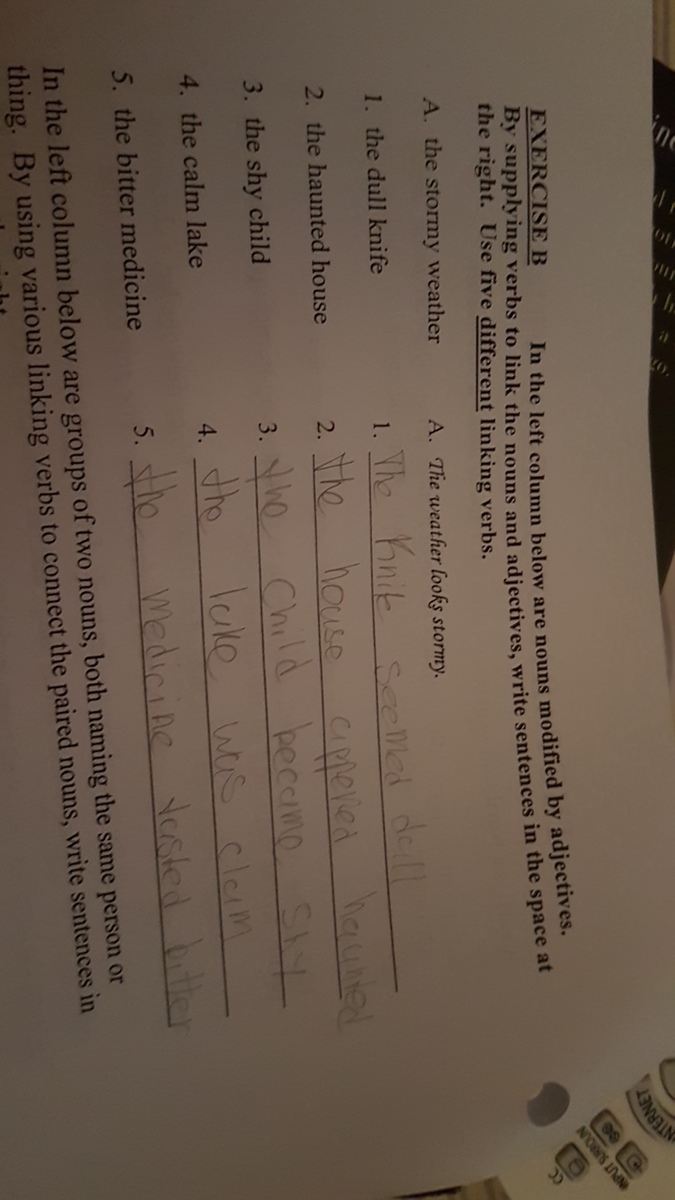 EXERCISE B In the left column below are nouns modified by adjectives.
By supplying verbs to link the nouns and adjectives, write sentences in the space at
the right. Use five different linking verbs.
A. the stormy weather A. The weather looks stormy.
1. the dull knife 1. The Knife seemed dull
2. the haunted house 2. the house appered haunted
3. the shy child 3. the child became shy
4. the calm lake 4. the lake was claim
5. the bitter medicine 5. the medicine tasted bitter
In the left column below are groups of two nouns, both naming the same person or
thing. By using various linking verbs to connect the paired nouns, write sentences in
INTERNET
INPUT
CC